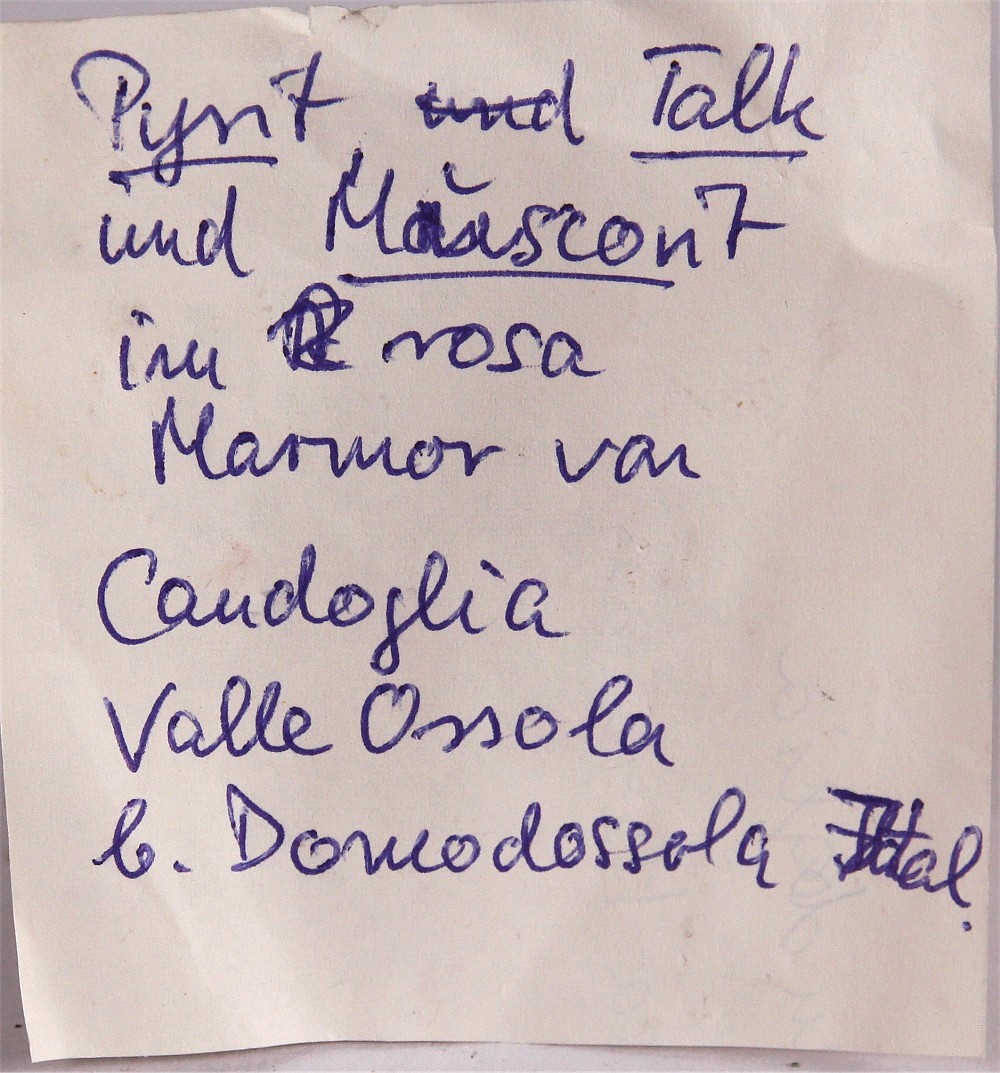 Pyrit und Talk
und Muscovit
im rosa
Marmor von
Candoglia
Valle Ossola
b. Domodossola Ital.